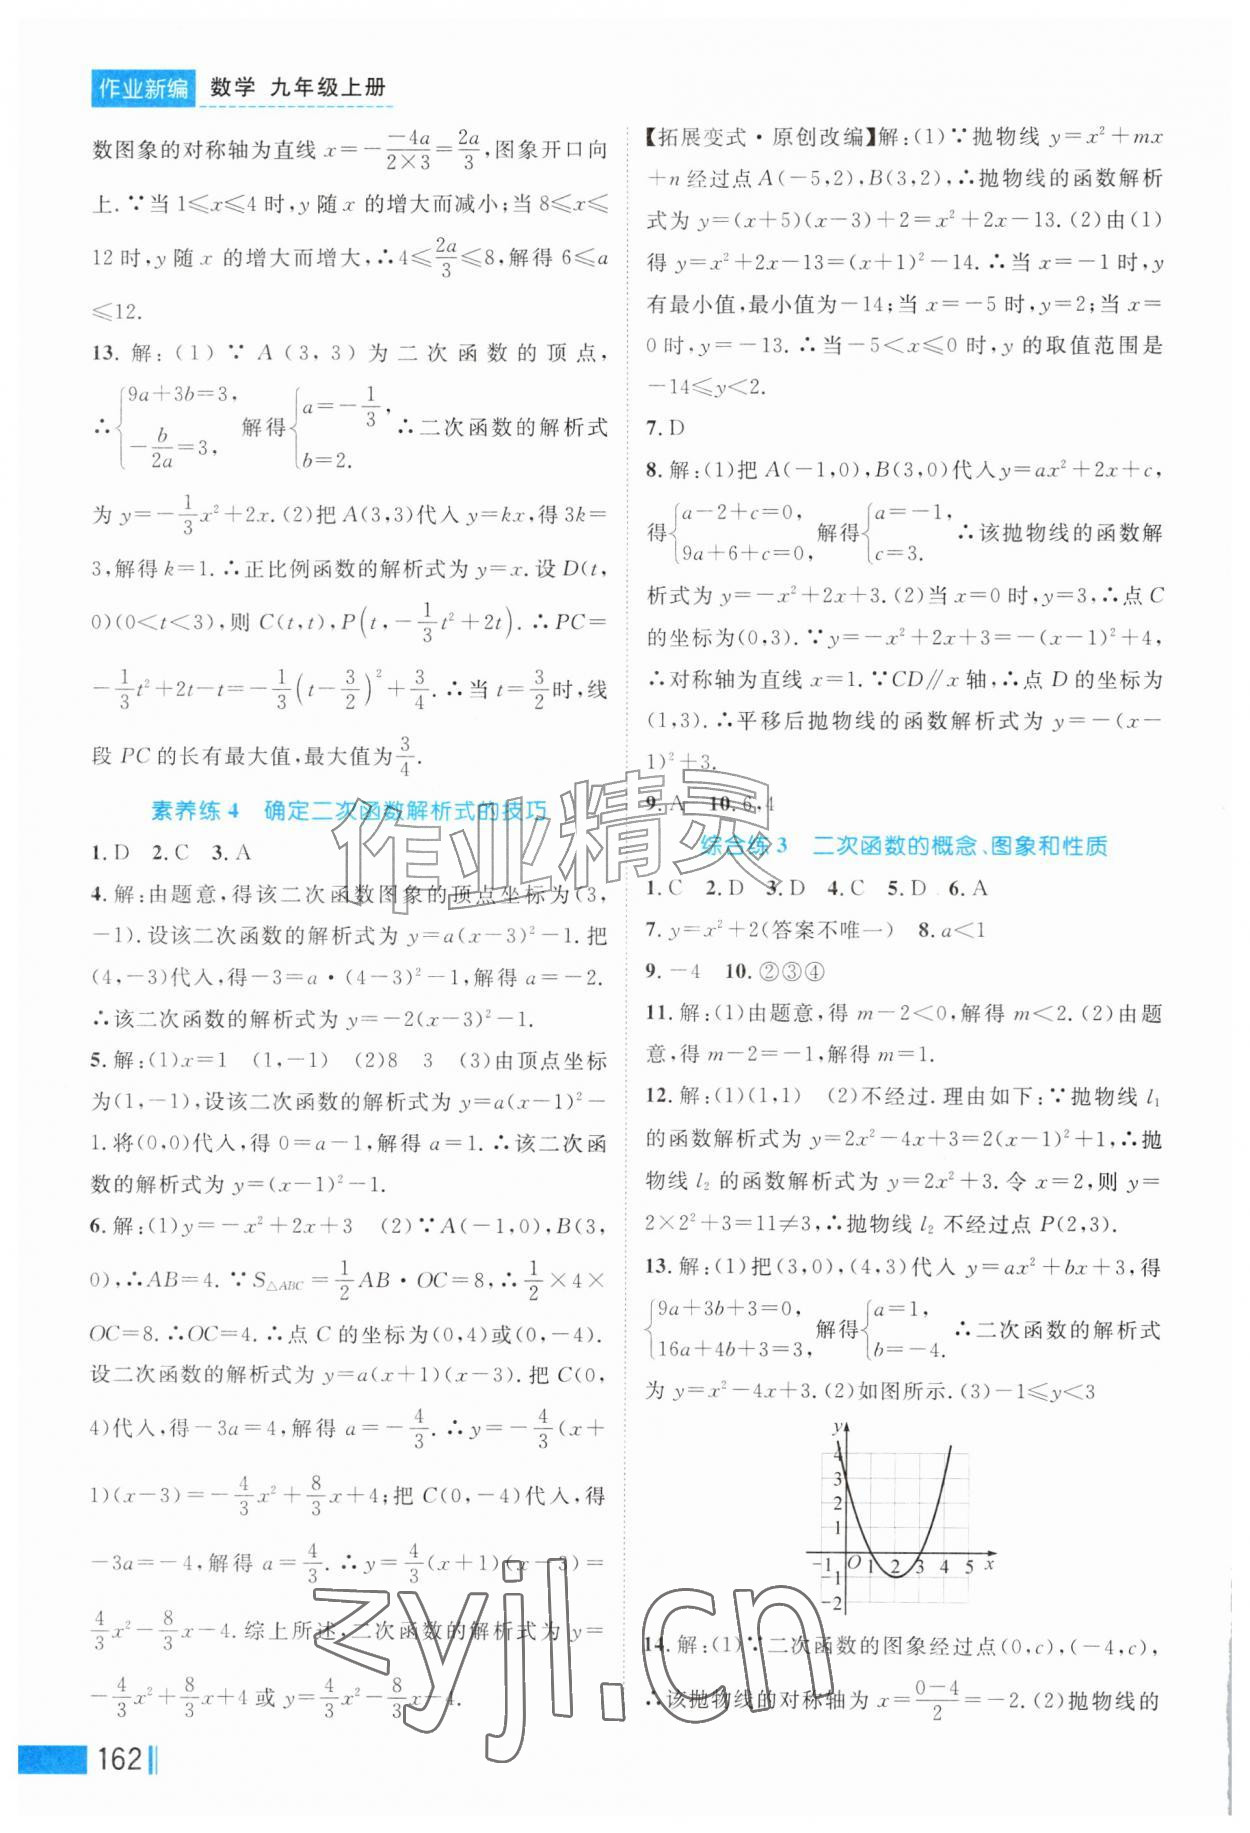 作业新编 数学 九年级上册
数图象的对称轴为直线 x=−\frac{-4a}{2×3}=\frac{2a}{3},图象开口向
上.∵当 1≤x≤4 时,y 随 x 的增大而减小;当 8≤x≤
12 时,y 随 x 的增大而增大,∴4≤\frac{2a}{3}≤8,解得 6≤a
≤12.
13. 解:(1)∵A(3,3)为二次函数的顶点,
∴{9a+3b=3, −\frac{b}{2a}=3, 解得{a=−\frac{1}{3}, b=2. ∴二次函数的解析式
为 y=−\frac{1}{3}x²+2x.(2)把 A(3,3)代入 y=kx,得 3k=
3,解得 k=1.∴正比例函数的解析式为 y=x.设 D(t,
0)(0<t<3),则 C(t,t),P(t,−\frac{1}{3}t²+2t).∴PC=
−\frac{1}{3}t²+2t−t=−\frac{1}{3}(t−\frac{3}{2})²+\frac{3}{4}.∴当 t=\frac{3}{2}时,线
段 PC 的长有最大值,最大值为\frac{3}{4}.
素养练 4 确定二次函数解析式的技巧
1. D 2. C 3. A
4. 解:由题意,得该二次函数图象的顶点坐标为(3,
−1).设该二次函数的解析式为 y=a(x−3)²−1.把
(4,−3)代入,得−3=a·(4−3)²−1,解得 a=−2.
∴该二次函数的解析式为 y=−2(x−3)²−1.
5. 解:(1)x=1 (1,−1) (2)8 3 (3)由顶点坐标
为(1,−1),设该二次函数的解析式为 y=a(x−1)²−
1.将(0,0)代入,得 0=a−1,解得 a=1.∴该二次函
数的解析式为 y=(x−1)²−1.
6. 解:(1)y=−x²+2x+3 (2)∵A(−1,0),B(3,
0),∴AB=4.∵S△ABC=\frac{1}{2}AB·OC=8,∴\frac{1}{2}×4×
OC=8.∴OC=4.∴点 C 的坐标为(0,4)或(0,−4).
设二次函数的解析式为 y=a(x+1)(x−3).把 C(0,
4)代入,得−3a=4,解得 a=−\frac{4}{3}.∴y=−\frac{4}{3}(x+
1)(x−3)=−\frac{4}{3}x²+\frac{8}{3}x+4;把 C(0,−4)代入,得
−3a=−4,解得 a=\frac{4}{3}.∴y=\frac{4}{3}(x+1)(x−3)=
\frac{4}{3}x²−\frac{8}{3}x−4.综上所述,二次函数的解析式为 y=
−\frac{4}{3}x²+\frac{8}{3}x+4 或 y=\frac{4}{3}x²−\frac{8}{3}x−4.
162
【拓展变式·原创改编】解:(1)∵抛物线 y=x²+mx
+n 经过点 A(−5,2),B(3,2),∴抛物线的函数解析
式为 y=(x+5)(x−3)+2=x²+2x−13.(2)由(1)
得 y=x²+2x−13=(x+1)²−14.∴当 x=−1 时,y
有最小值,最小值为−14;当 x=−5 时,y=2;当 x=
0 时,y=−13.∴当−5<x≤0 时,y 的取值范围是
−14≤y<2.
7. D
8. 解:(1)把 A(−1,0),B(3,0)代入 y=ax²+2x+c,
得{a−2+c=0, 9a+6+c=0, 解得{a=−1, c=3. ∴该抛物线的函数解
析式为 y=−x²+2x+3.(2)当 x=0 时,y=3,∴点 C
的坐标为(0,3).∵y=−x²+2x+3=−(x−1)²+4,
∴对称轴为直线 x=1.∵CD∥x 轴,∴点 D 的坐标为
(1,3).∴平移后抛物线的函数解析式为 y=−(x−
1)²+3.
9. A 10. 6,4
综合练 3 二次函数的概念、图象和性质
1. C 2. D 3. D 4. C 5. D 6. A
7. y=x²+2(答案不唯一) 8. a<1
9. −4 10. ②③④
11. 解:(1)由题意,得 m−2<0,解得 m<2.(2)由题
意,得 m−2=−1,解得 m=1.
12. 解:(1)(1,1) (2)不经过.理由如下:∵抛物线 l₁
的函数解析式为 y=2x²−4x+3=2(x−1)²+1,∴抛
物线 l₂ 的函数解析式为 y=2x²+3.令 x=2,则 y=
2×2²+3=11≠3,∴抛物线 l₂ 不经过点 P(2,3).
13. 解:(1)把(3,0),(4,3)代入 y=ax²+bx+3,得
{9a+3b+3=0, 16a+4b+3=3, 解得{a=1, b=−4. ∴二次函数的解析式
为 y=x²−4x+3.(2)如图所示.(3)−1≤y<3
y
4
3
2
1
−1 O 1 2 3 4 5 x
−1
−2
14. 解:(1)∵二次函数的图象经过点(0,c),(−4,c),
∴该抛物线的对称轴为 x=\frac{0−4}{2}=−2.(2)抛物线的
作业精灵
zyjl.cn